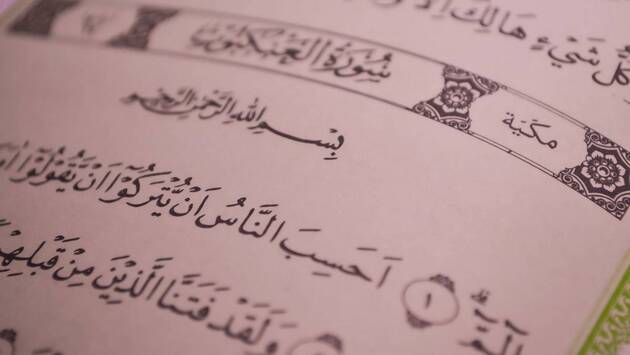 كُلُّ شَيْءٍ هَالِكٌ اِلَّا
مَكِّيَّة سُورَةُ الْعَنْكَبُوتِ
بِسْمِ اللّٰهِ الرَّحْمٰنِ الرَّحِيمِ
الٓمٓ ۚ ﴿١﴾ اَحَسِبَ النَّاسُ اَنْ يُتْرَكُٓوا اَنْ يَقُولُٓوا
وَلَقَدْ فَتَنَّا الَّذِينَ مِنْ قَبْلِهِمْ